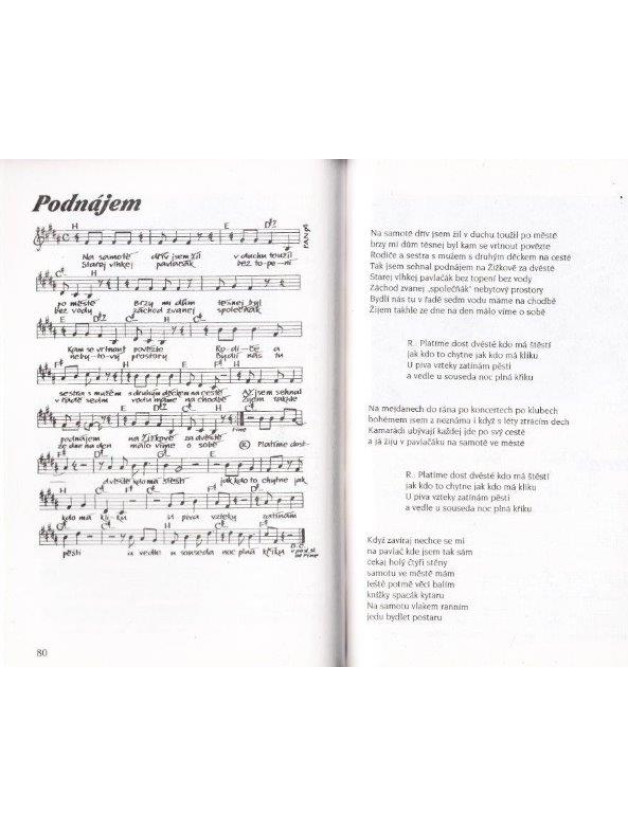 Podnájem
H E
Na samotě dřív jsem žil v duchu toužil
Starej vlhkej pavlačák bez tope-ní
po městě Brzy mi dům těsnej byl
bez vody záchod zvanej společňák
Kam se vrtnout povězte Ro-di-če a
neby-to-vý prostory bydlí nás tu
sestra s mužem s druhým děckem na cestě Až jsem sehnal
v řadě sedm vodu máme na chodbě žijem takhle
podnájem na Žižkově za dvěstě
ze dne na den málo víme o sobě Ⓡ Platíme dost
dvěstě kdo má štěstí jak kdo to chytne jak
kdo má kliku U piva vzteky zatínám
pěsti a vedle u souseda noc plná křiku
80
Na samotě dřív jsem žil v duchu toužil po městě
brzy mi dům těsnej byl kam se vrtnout povězte
Rodiče a sestra s mužem s druhým děckem na cestě
Tak jsem sehnal podnájem na Žižkově za dvěstě
Starej vlhkej pavlačák bez topení bez vody
Záchod zvanej „společňák" nebytový prostory
Bydlí nás tu v řadě sedm vodu máme na chodbě
Žijem takhle ze dne na den málo víme o sobě
R.: Platíme dost dvěstě kdo má štěstí
jak kdo to chytne jak kdo má kliku
U piva vzteky zatínám pěsti
a vedle u souseda noc plná křiku
Na mejdanech do rána po koncertech po klubech
bohémem jsem a neznáma i když s léty ztrácím dech
Kamarádi ubývají každej jde po svý cestě
a já žiju v pavlačáku na samotě ve městě
R.: Platíme dost dvěstě kdo má štěstí
jak kdo to chytne jak kdo má kliku
U piva vzteky zatínám pěsti
a vedle u souseda noc plná křiku
Když zavíraj nechce se mi
na pavlač kde jsem tak sám
čekaj holý čtyři stěny
samotu ve městě mám
Ještě potmě věci balím
knížky spacák kytaru
Na samotu vlakem ranním
jedu bydlet postaru